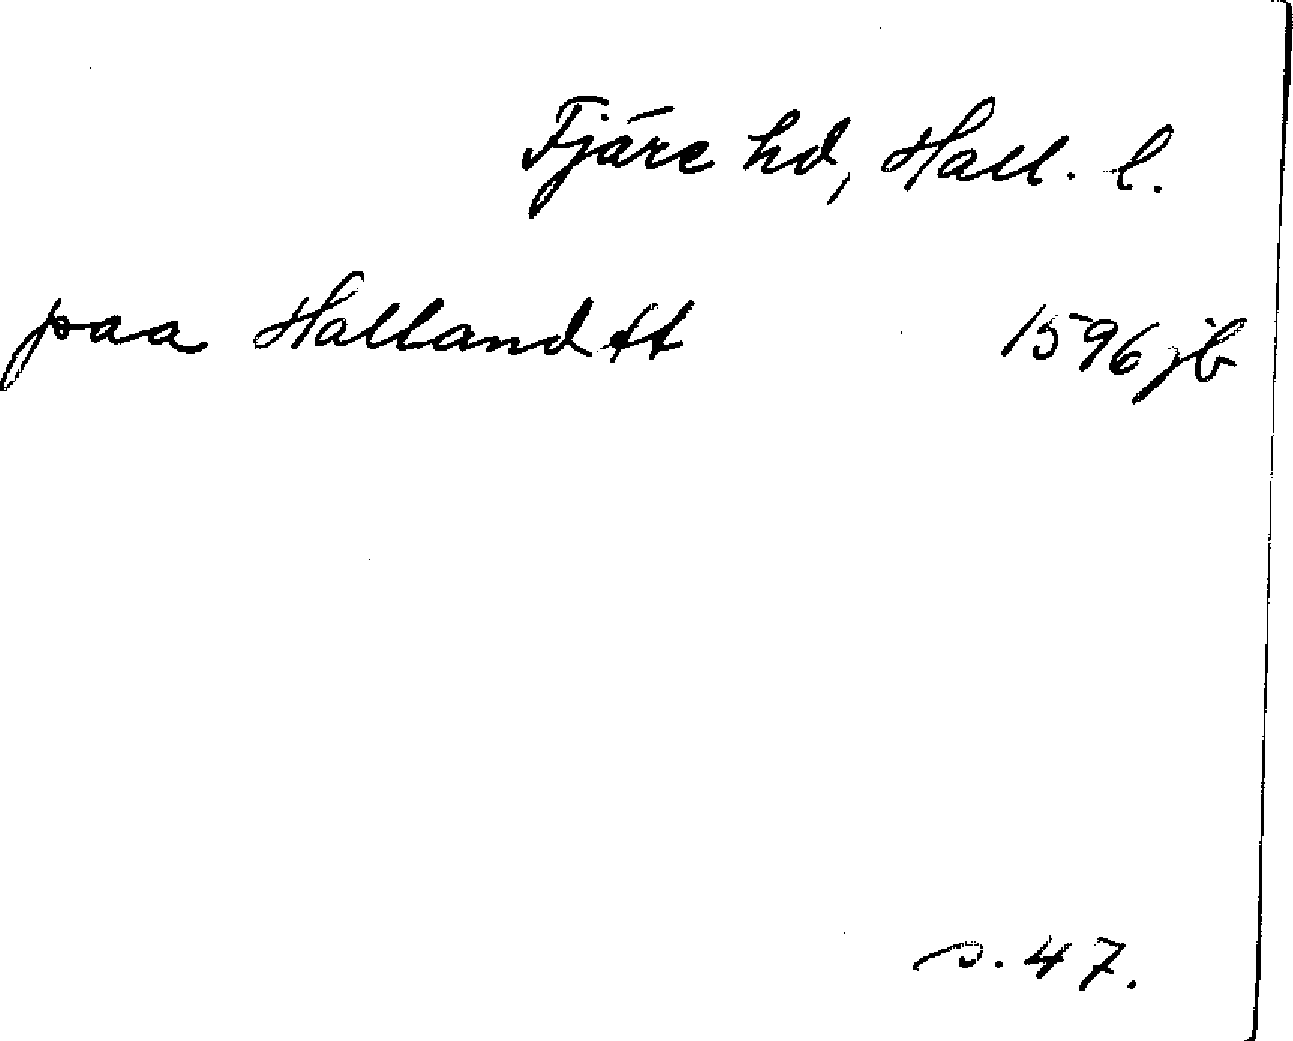 Fjäre hd, Hall. l.
paa Halland tt 1596 jb
s. 47.